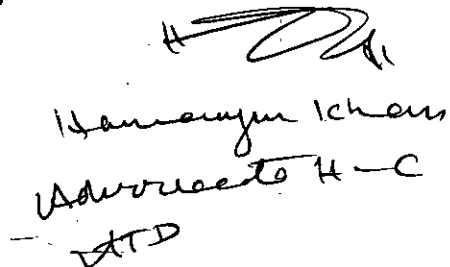 Hamayun Khan
Advocate H-C
ATD